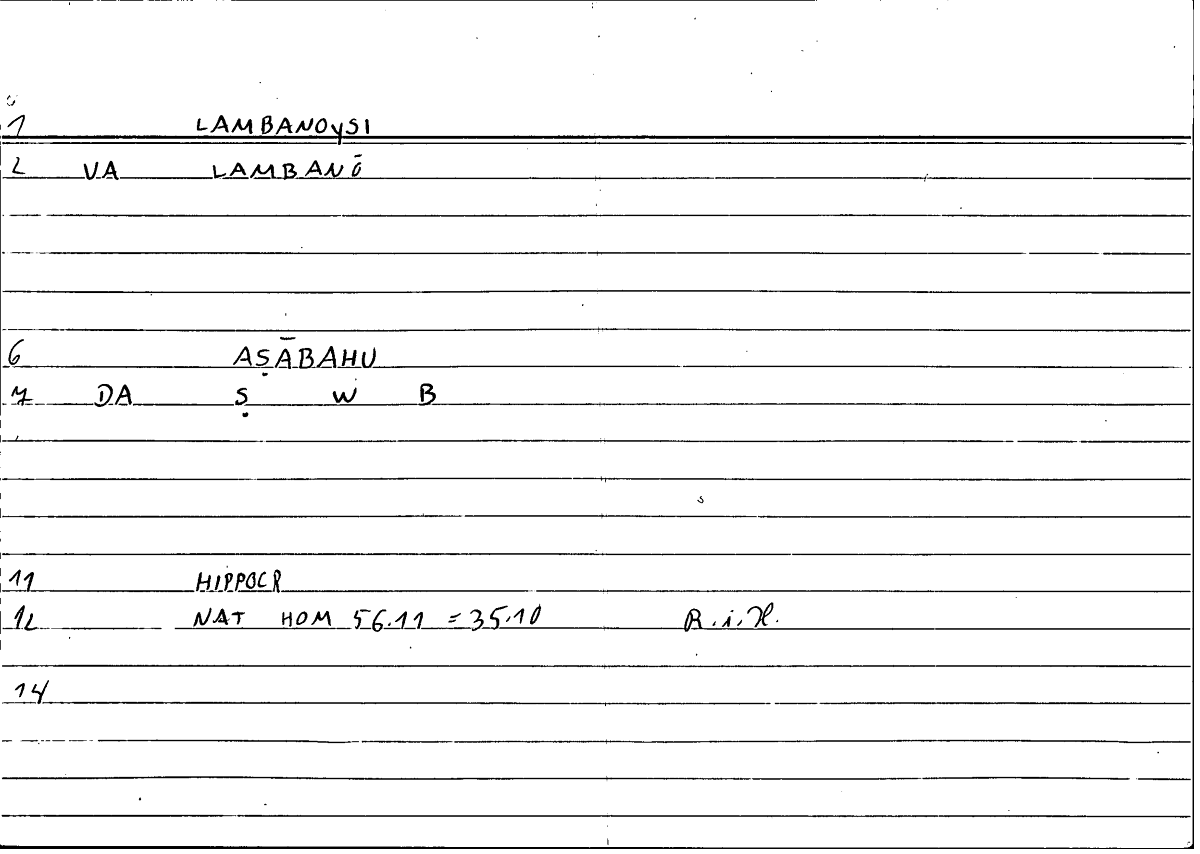 1 LAMBANOYSI
2 VA LAMBANŌ
6 AṢĀBAHU
7 DA Ṣ W B
11 HIPPOCR
12 NAT HOM 56.11 = 35.10 R.i.H.
14